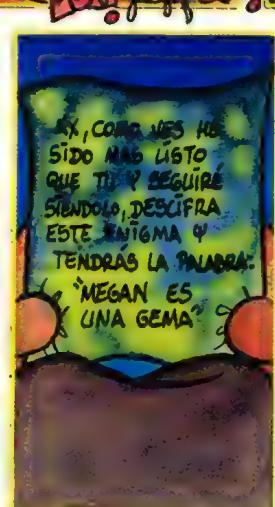 AX, COMO VES HE
SIDO MAS LISTO
QUE TU Y SEGUIRÉ
SIENDOLO, DESCIFRA
ESTE ENIGMA Y
TENDRÁS LA PALABRA:
"MEGAN ES
UNA GEMA"